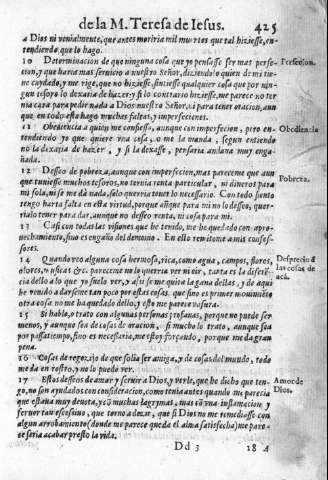 de la M. Teresa de Iesus. 425
a Dios ni venialmente, que antes moriria mil muertes que tal hiziesse, en-
tendiendo que lo hago.
10 Determinacion de que ninguna cosa que yo pensasse ser mas perfe-
cion, y que haria mas seruicio a nuestro Señor, diziendolo quien de mi tie-
ne cuydado, y me rige, que no hiziesse, sintiesse qualquier cosa que por nin-
gun tesoro lo dexaria de hazer, y si lo contrario hiziesse, me parece no ter-
nia cara para pedir nada a Dios nuestro Señor, ni para tener oracion, aun
que en todo esto hago muchas faltas, y imperfeciones.
Perfecion.
11 Obediencia a quien me confiessa, aunque con imperfecion, pero en-
tendiendo yo que quiere vna cosa, o me la manda, segun entiendo
no la dexaria de hazer, y si la dexasse, pensaria andaua muy enga-
ñada.
Obediencia
12 Desseo de pobreza, aunque con imperfecion, mas pareceme que aun
que tuuiesse muchos tesoros, no ternia renta particular, ni dineros para
mi sola, ni se me da nada, solo querria tener lo necessario. Con todo siento
tengo harta falta en esta virtud, porque aunque para mi no lo desseo, quer-
rialo tener para dar, aunque no desseo renta, ni cosa para mi.
Pobreza.
13 Casi con todas las visiones que he tenido, me he quedado con apro-
uechamiento, sino es engaño del demonio. En esto remitome a mis confes-
sores.
14 Quando veo alguna cosa hermosa, rica, como agua, campos, flores,
olores, musicas &c. pareceme no lo querria ver ni oir, tanta es la diferē-
cia dello a lo que yo suelo ver, y assi se me quita la gana dellas, y de aqui
he venido a darseme tan poco por estas cosas, que sino es primer mouimiēto
otra cosa no me ha quedado dello, y esto me parece vasura.
Desprecio d
las cosas de
acá.
15 Si hablo, o trato con algunas personas profanas, porque no puede ser
menos, y aunque sea de cosas de oracion, si mucho lo trato, aunque sea
por passatiempo, sino es necessario, me estoy forçando, porque me da gran
pena.
16 Cosas de regozijo de que solia ser amiga, y de cosas del mundo, todo
me da en rostro, y no lo puedo ver.
17 Estos desseos de amar, y seruir a Dios, y verle, que he dicho que ten-
go, no son ayudados con consideracion, como tenia antes quando me parecia
que estaua muy deuota, y cō muchas lagrymas, mas cō vna inflamacion, y
feruor tan excessiuo, que torno a dezir, que si Dios no me remediasse con
algun arrobamiento (donde me parece queda el alma satisfecha) me pare-
ce seria acabar presto la vida.
Amor de
Dios.
Dd 3 18 A